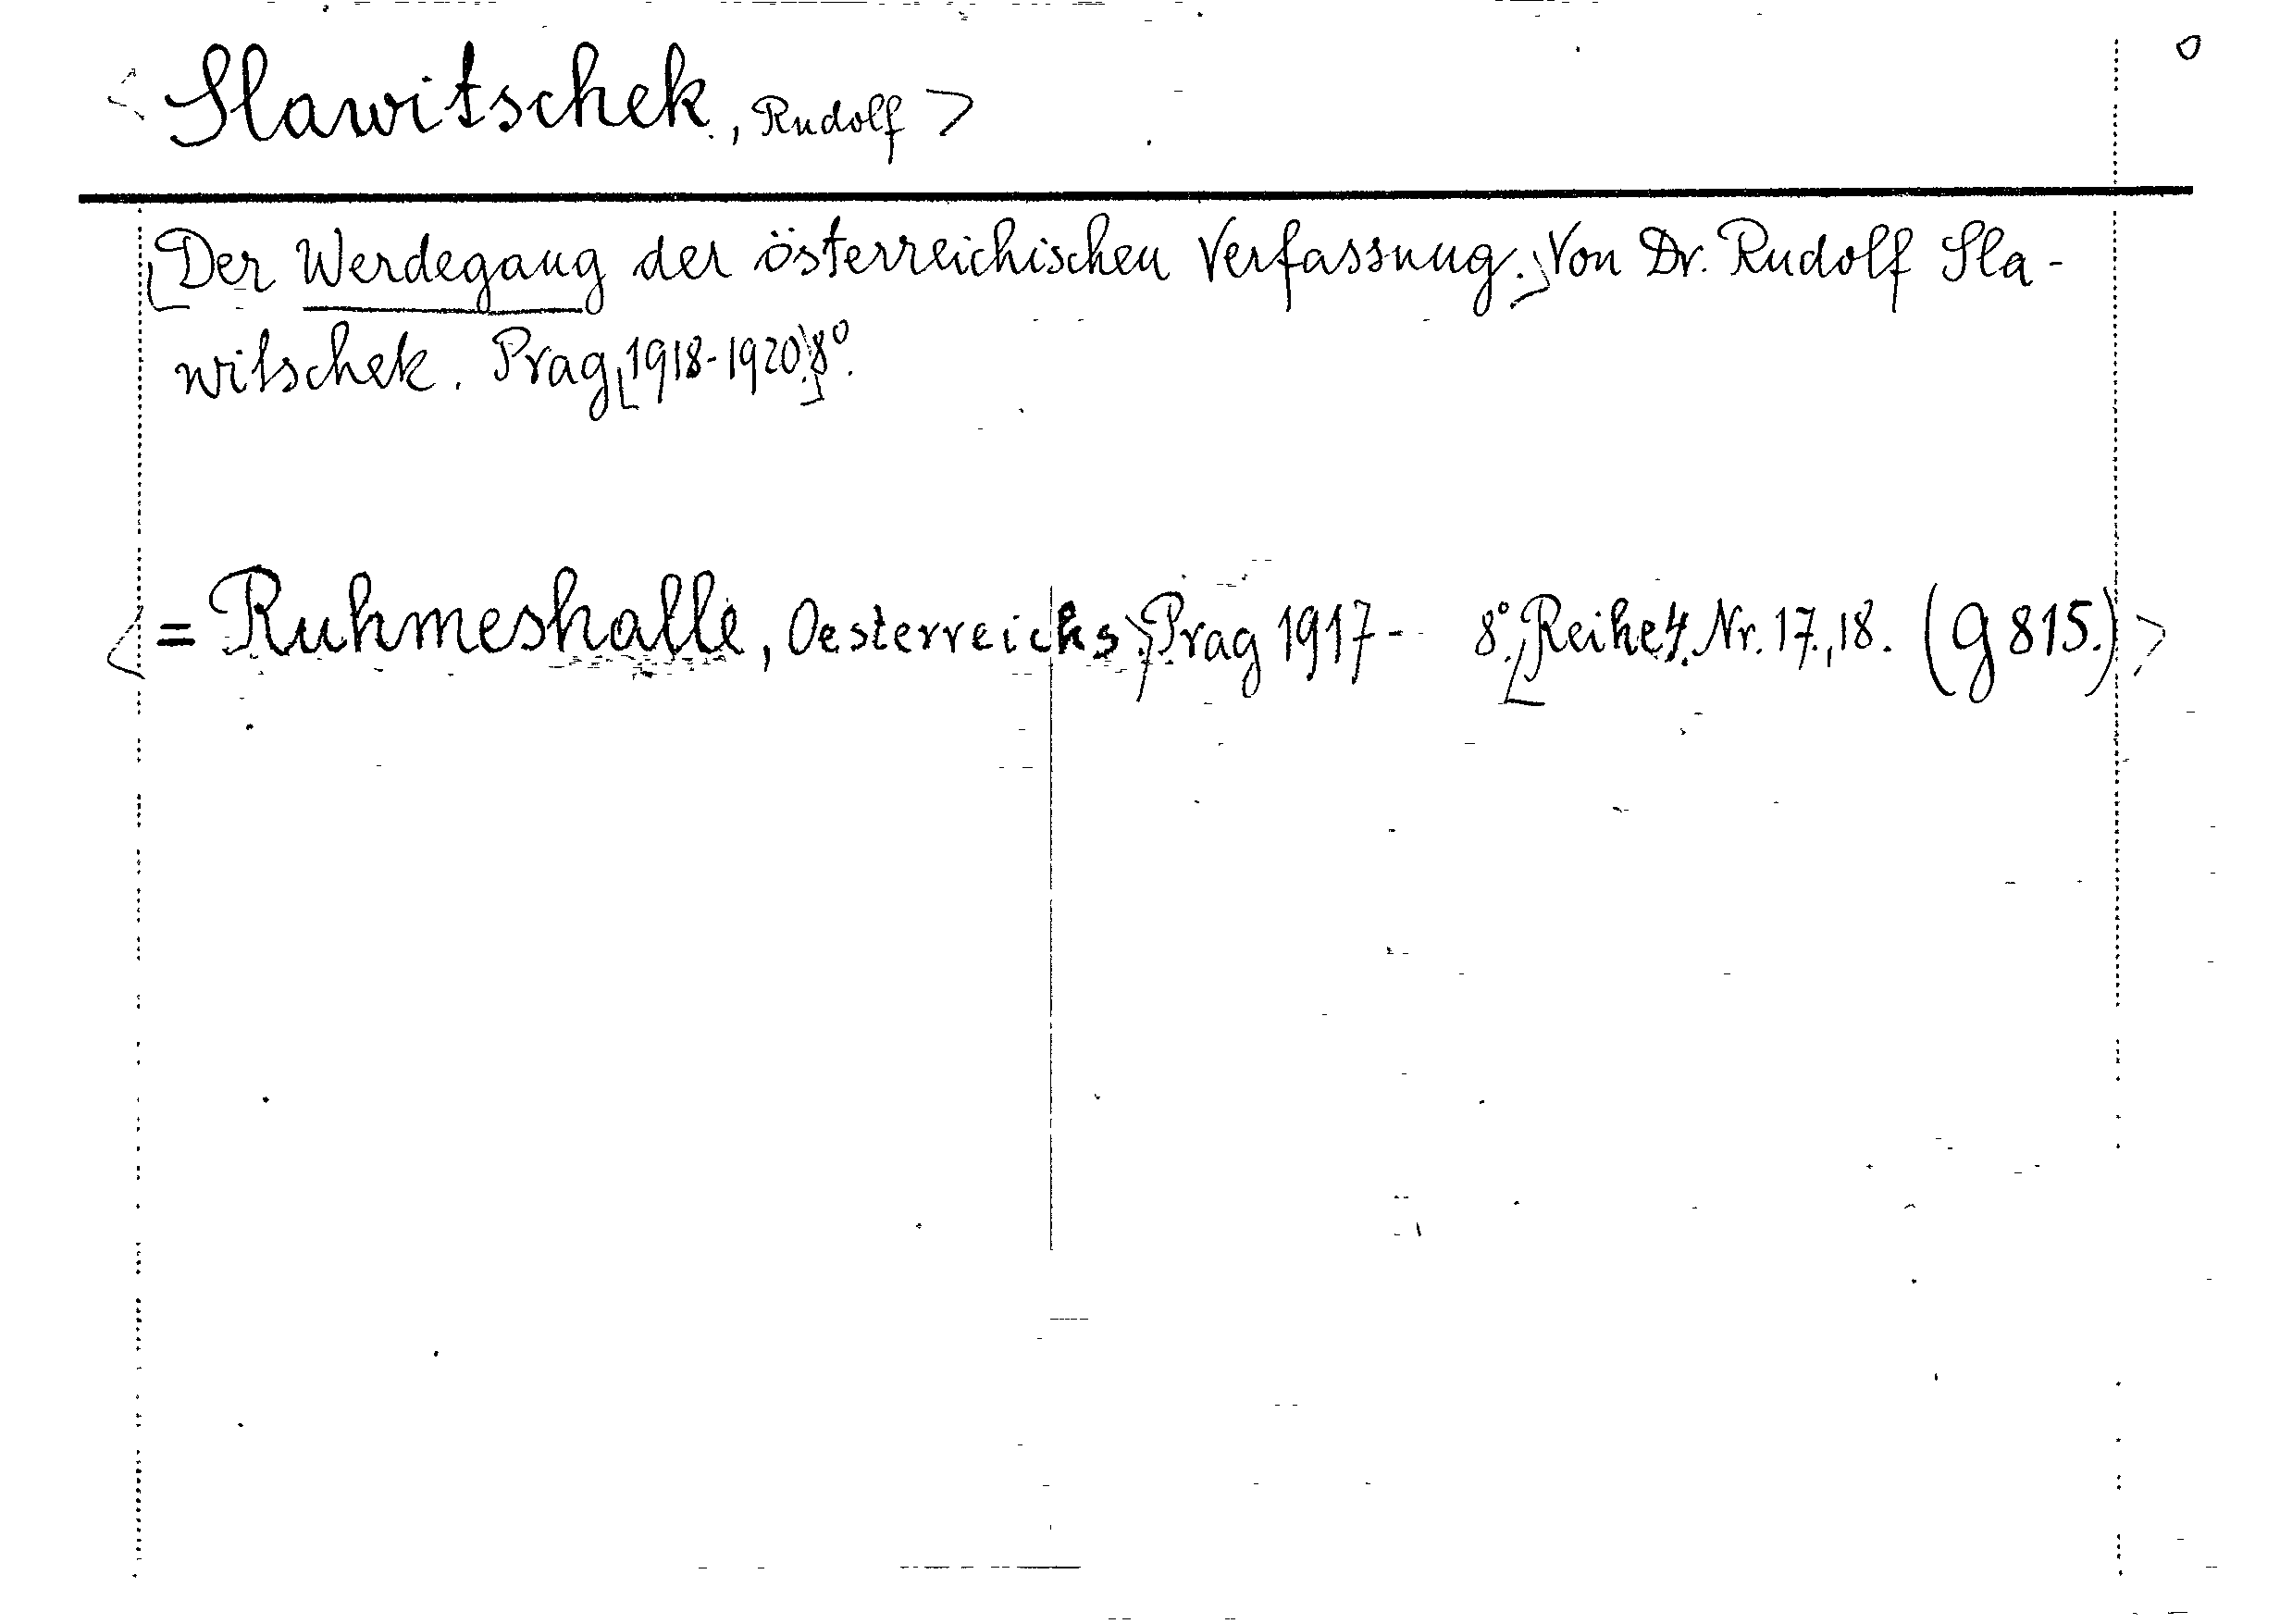 < Slawitschek, Rudolf > 0
[Der Werdegang der österreichischen Verfassung.] Von Dr. Rudolf Sla-
witschek. Prag [1918-1920.] 8°.
< = Ruhmeshalle, Oesterreichs, Prag 1917- 8°. [Reihe 4. Nr. 17., 18. (G 815.) >